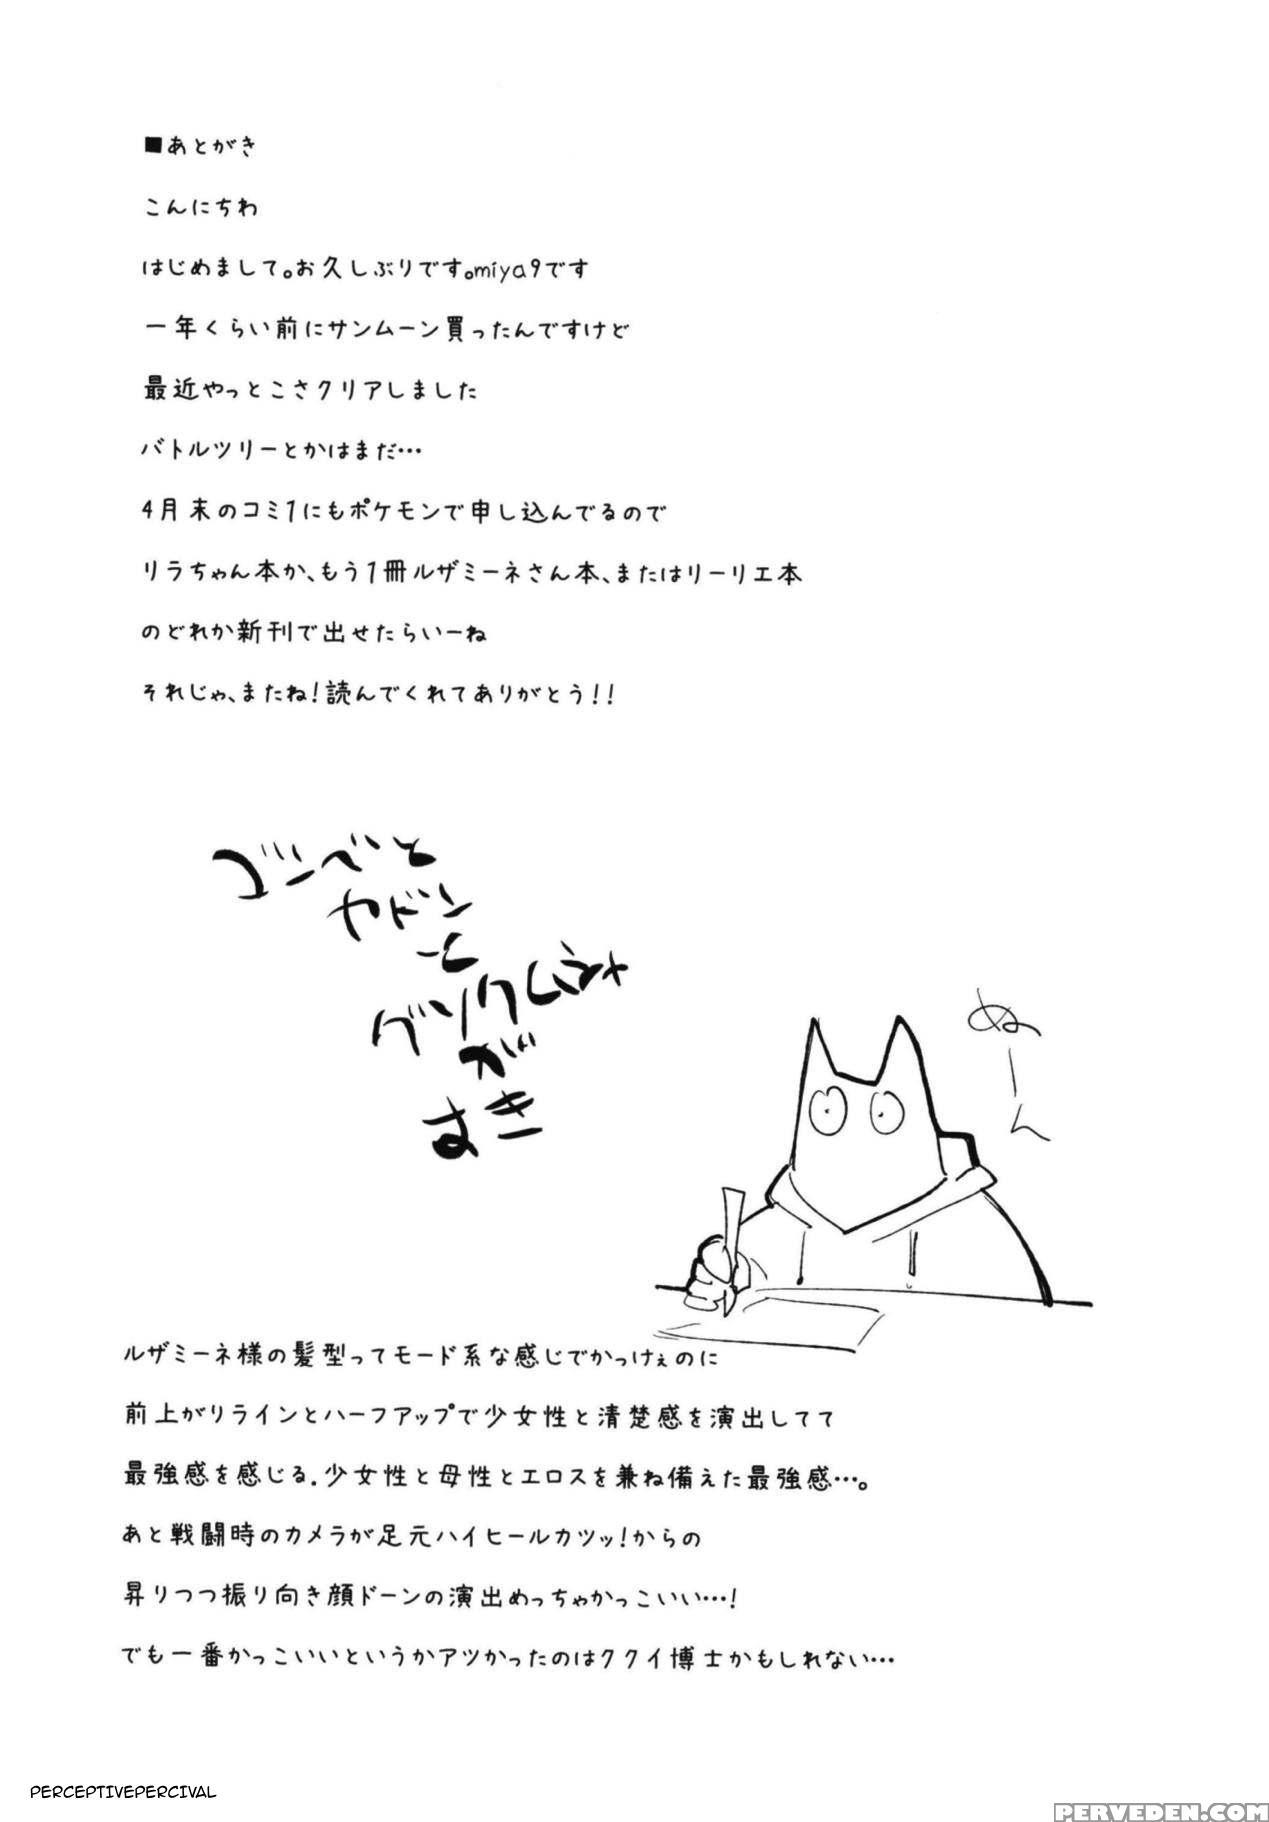 ■あとがき
こんにちわ
はじめまして。お久しぶりです。miya9です
一年くらい前にサンムーン買ったんですけど
最近やっとこさクリアしました
バトルツリーとかはまだ…
4月末のコミ1にもポケモンで申し込んでるので
リラちゃん本か、もう1冊ルザミーネさん本、またはリーリエ本
のどれか新刊で出せたらいーね
それじゃ、またね!読んでくれてありがとう!!
ゴンベと
ヤドン
と
グソクムシャ
が
すき
ぬーん
ルザミーネ様の髪型ってモード系な感じでかっけぇのに
前上がりラインとハーフアップで少女性と清楚感を演出してて
最強感を感じる.少女性と母性とエロスを兼ね備えた最強感…。
あと戦闘時のカメラが足元ハイヒールカツッ!からの
昇りつつ振り向き顔ドーンの演出めっちゃかっこいい…!
でも一番かっこいいというかアツかったのはククイ博士かもしれない…
PERCEPTIVEPERCIVAL
PERVEDEN.COM